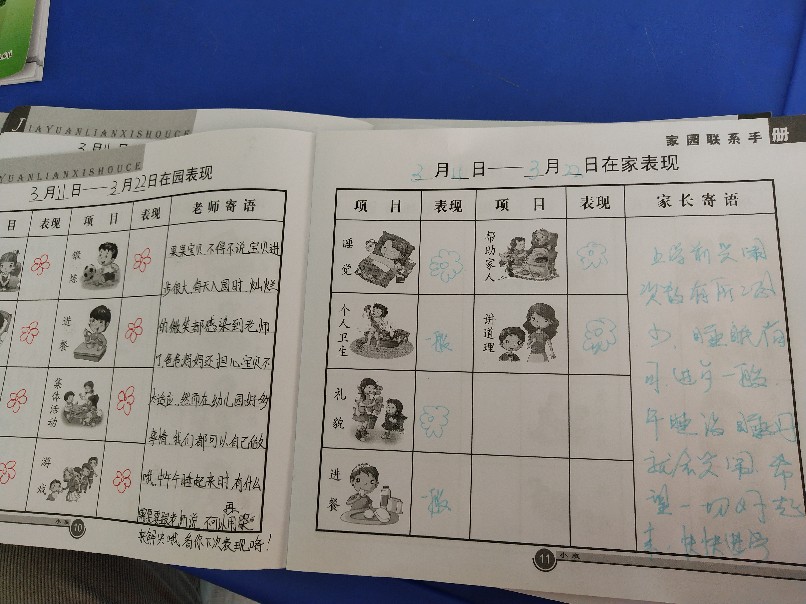 JIAYUANLIANXISHOUCE
YUANLIANXISHOUCE
3月11日——3月22日在园表现
目 表现 项 目 表现 老师寄语
锻炼
进餐
集体活动
游戏
果果宝贝,不得不说,宝贝进
步很大,每天入园时,灿烂
的微笑都感染到老师
了,爸爸妈妈还担心宝贝不
适应,然而在幼儿园好多
事情,我们都可以自己做
哦,中午午睡起来时,有什么
需要要跟老师说,不可以再用哭
来解决哦,看你下次表现哟!
小班 10
家园联系手册
3月11日——3月22日在家表现
项 目 表现 项 目 表现 家长寄语
睡觉 帮助家人
个人卫生 一般 讲道理
礼貌
进餐 一般
上学前哭闹
次数有所减
少,睡眠有
进步一般,
午睡没睡好
就会哭闹,希
望一切好起
来,快快进步
11 小班